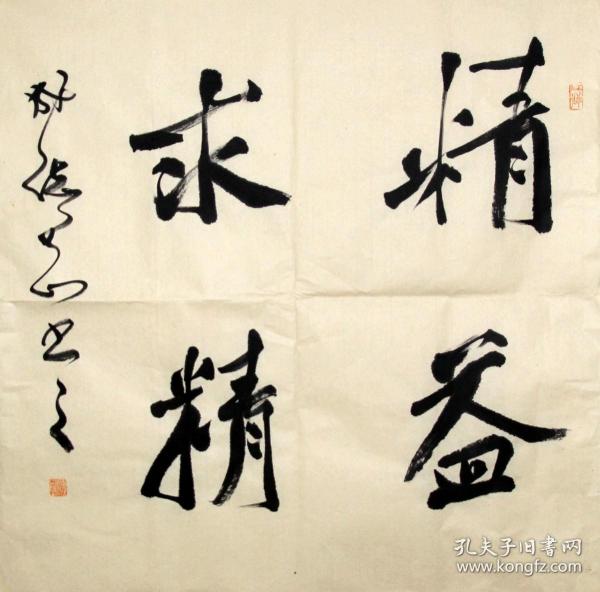 精益
求精
书之
孔夫子旧書网
www.kongfz.com